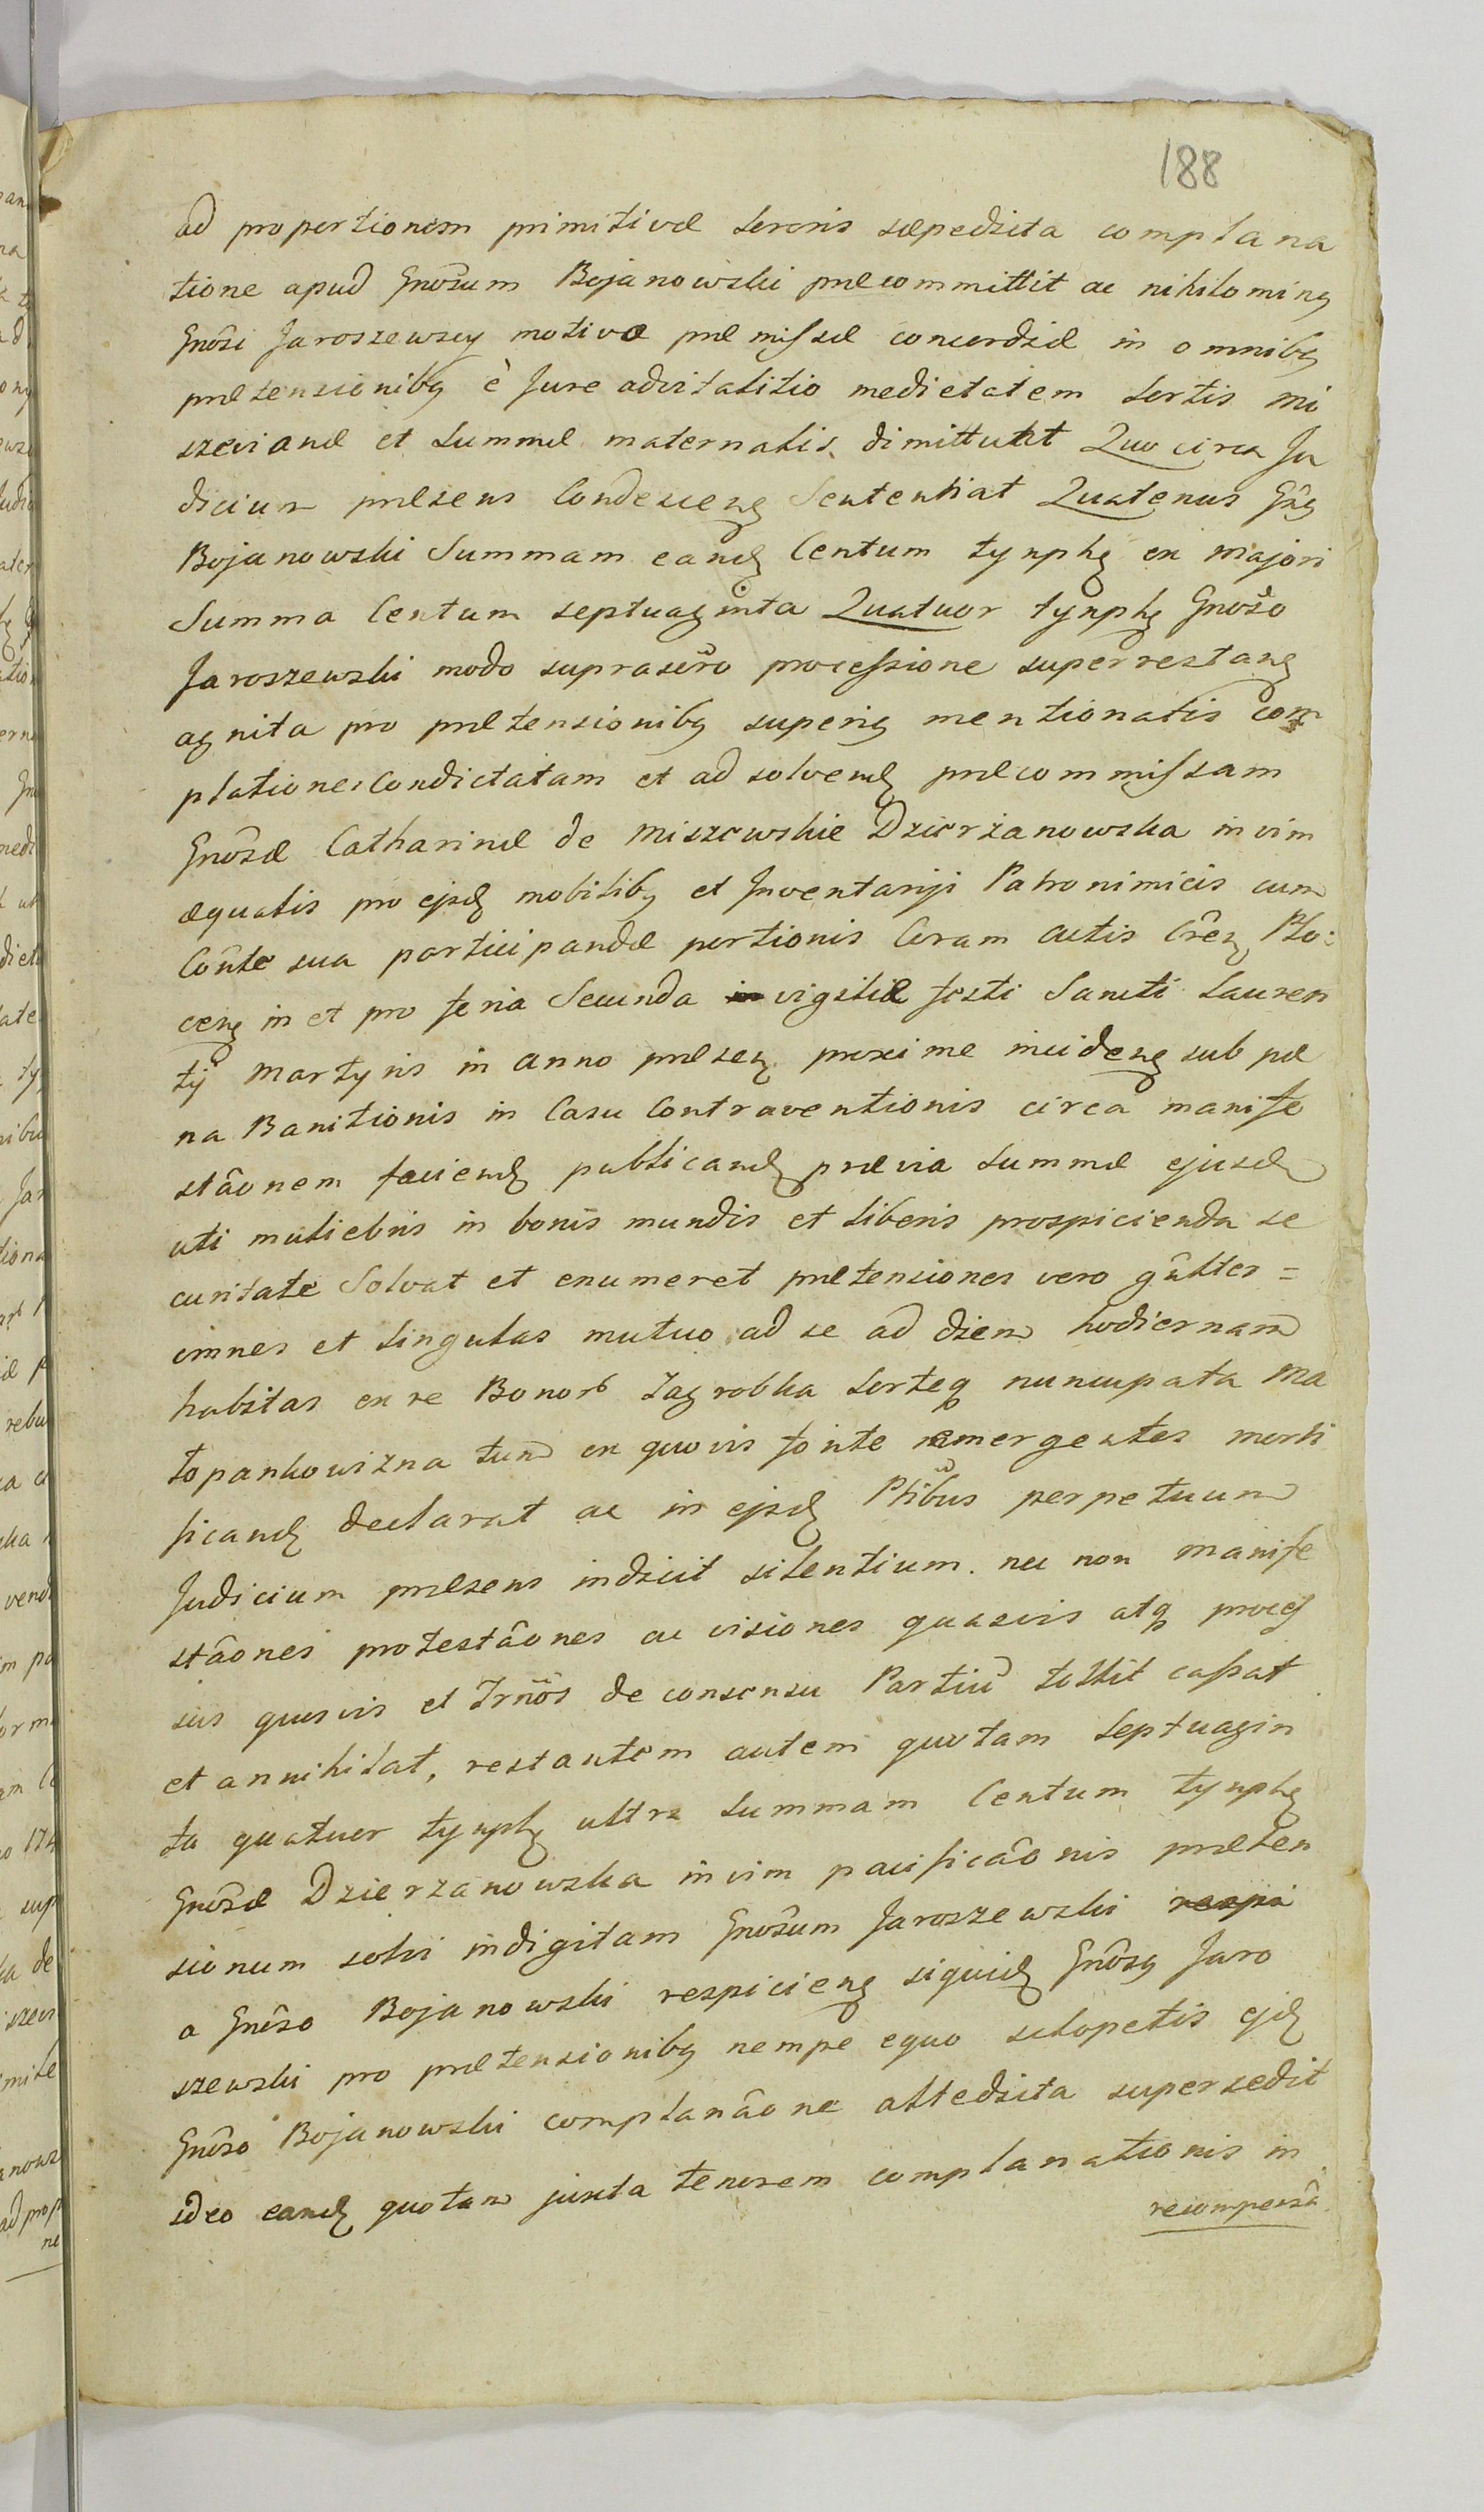 188
ad proportionem primitivæ sororis sæpedicta complana
tione apud Gnosum Bojanowski præcommittit ac nihilominꝫ
Gnosi Jaroszewscy motivo præmissæ concordiæ in omnibꝫ
prætensionibꝫ è Jure advitalitio medietatem sortis Mi
szevianæ et summæ maternalis dimittutit Quo circa Ju
dicium præsens Condescenꝫ Sententiat Quatenus Gnꝫ
Bojanowski Summam eandꝫ Centum tynphꝫ ex majori
Summa Centum septuaginta Quatuor tynphꝫ Gnoso
Jaroszewski modo suprascro processione superrestanꝫ
agnita pro prætensionibꝫ superiꝫ mentionatis com
platione condictatam et ad solvendꝫ præcommissam
Gnosæ Catharinæ de Miszewskie Dzierżanowska in vim
æqualis pro ejsdꝫ mobilibꝫ et Inventariji Patronimicis cum
Conte sua participandæ portionis Coram Actis Cren Plo:
cenꝫ in et pro feria Secunda vigiliæ festi Sancti Lauren
tij Martyris in anno præsenꝫ proxime incidenꝫ sub pæ
na Banitionis in Casu Contraventionis circa manife
stâonem faciendꝫ publicandꝫ prævia summæ ejusdꝫ
uti muliebris in bonis mundis et liberis prospicienda se
curitate Solvat et enumeret prætensiones vero gñlter =
omnes et singulas mutuo ad se ad diem hodiernam
habitas ex re Bonor Zagrobka sorteq nuncupata Ma
topankowizna tum ex quovis fonte emergentes morti
ficandꝫ declarat ac in ejsdꝫ Ptibus perpetuum
Judicium præsens indicit silentium. nec non manife
stâones protestâones ac visiones quasvis atq proces
sus quosvis et Trnos de consensu Partiu tollit cassat
et annihilat, restantem autem quotam septuagin
ta quatuor tynphꝫ ultra summam Centum tynphꝫ
Gnosæ Dzierzanowska in vim pacificâonis præten
sionum solvi indigitam Gnosum Jaroszewski respi
a Gnoso Bojanowski respicienꝫ siquidꝫ Gnosꝫ Jaro
szewski pro prætensionibꝫ nempe equo sclopetis ejdꝫ
Gnoso Bojanowski complanâone attedicta supersedit
ideo eandꝫ quotam juxta tenorem complanationis in
recompensâ